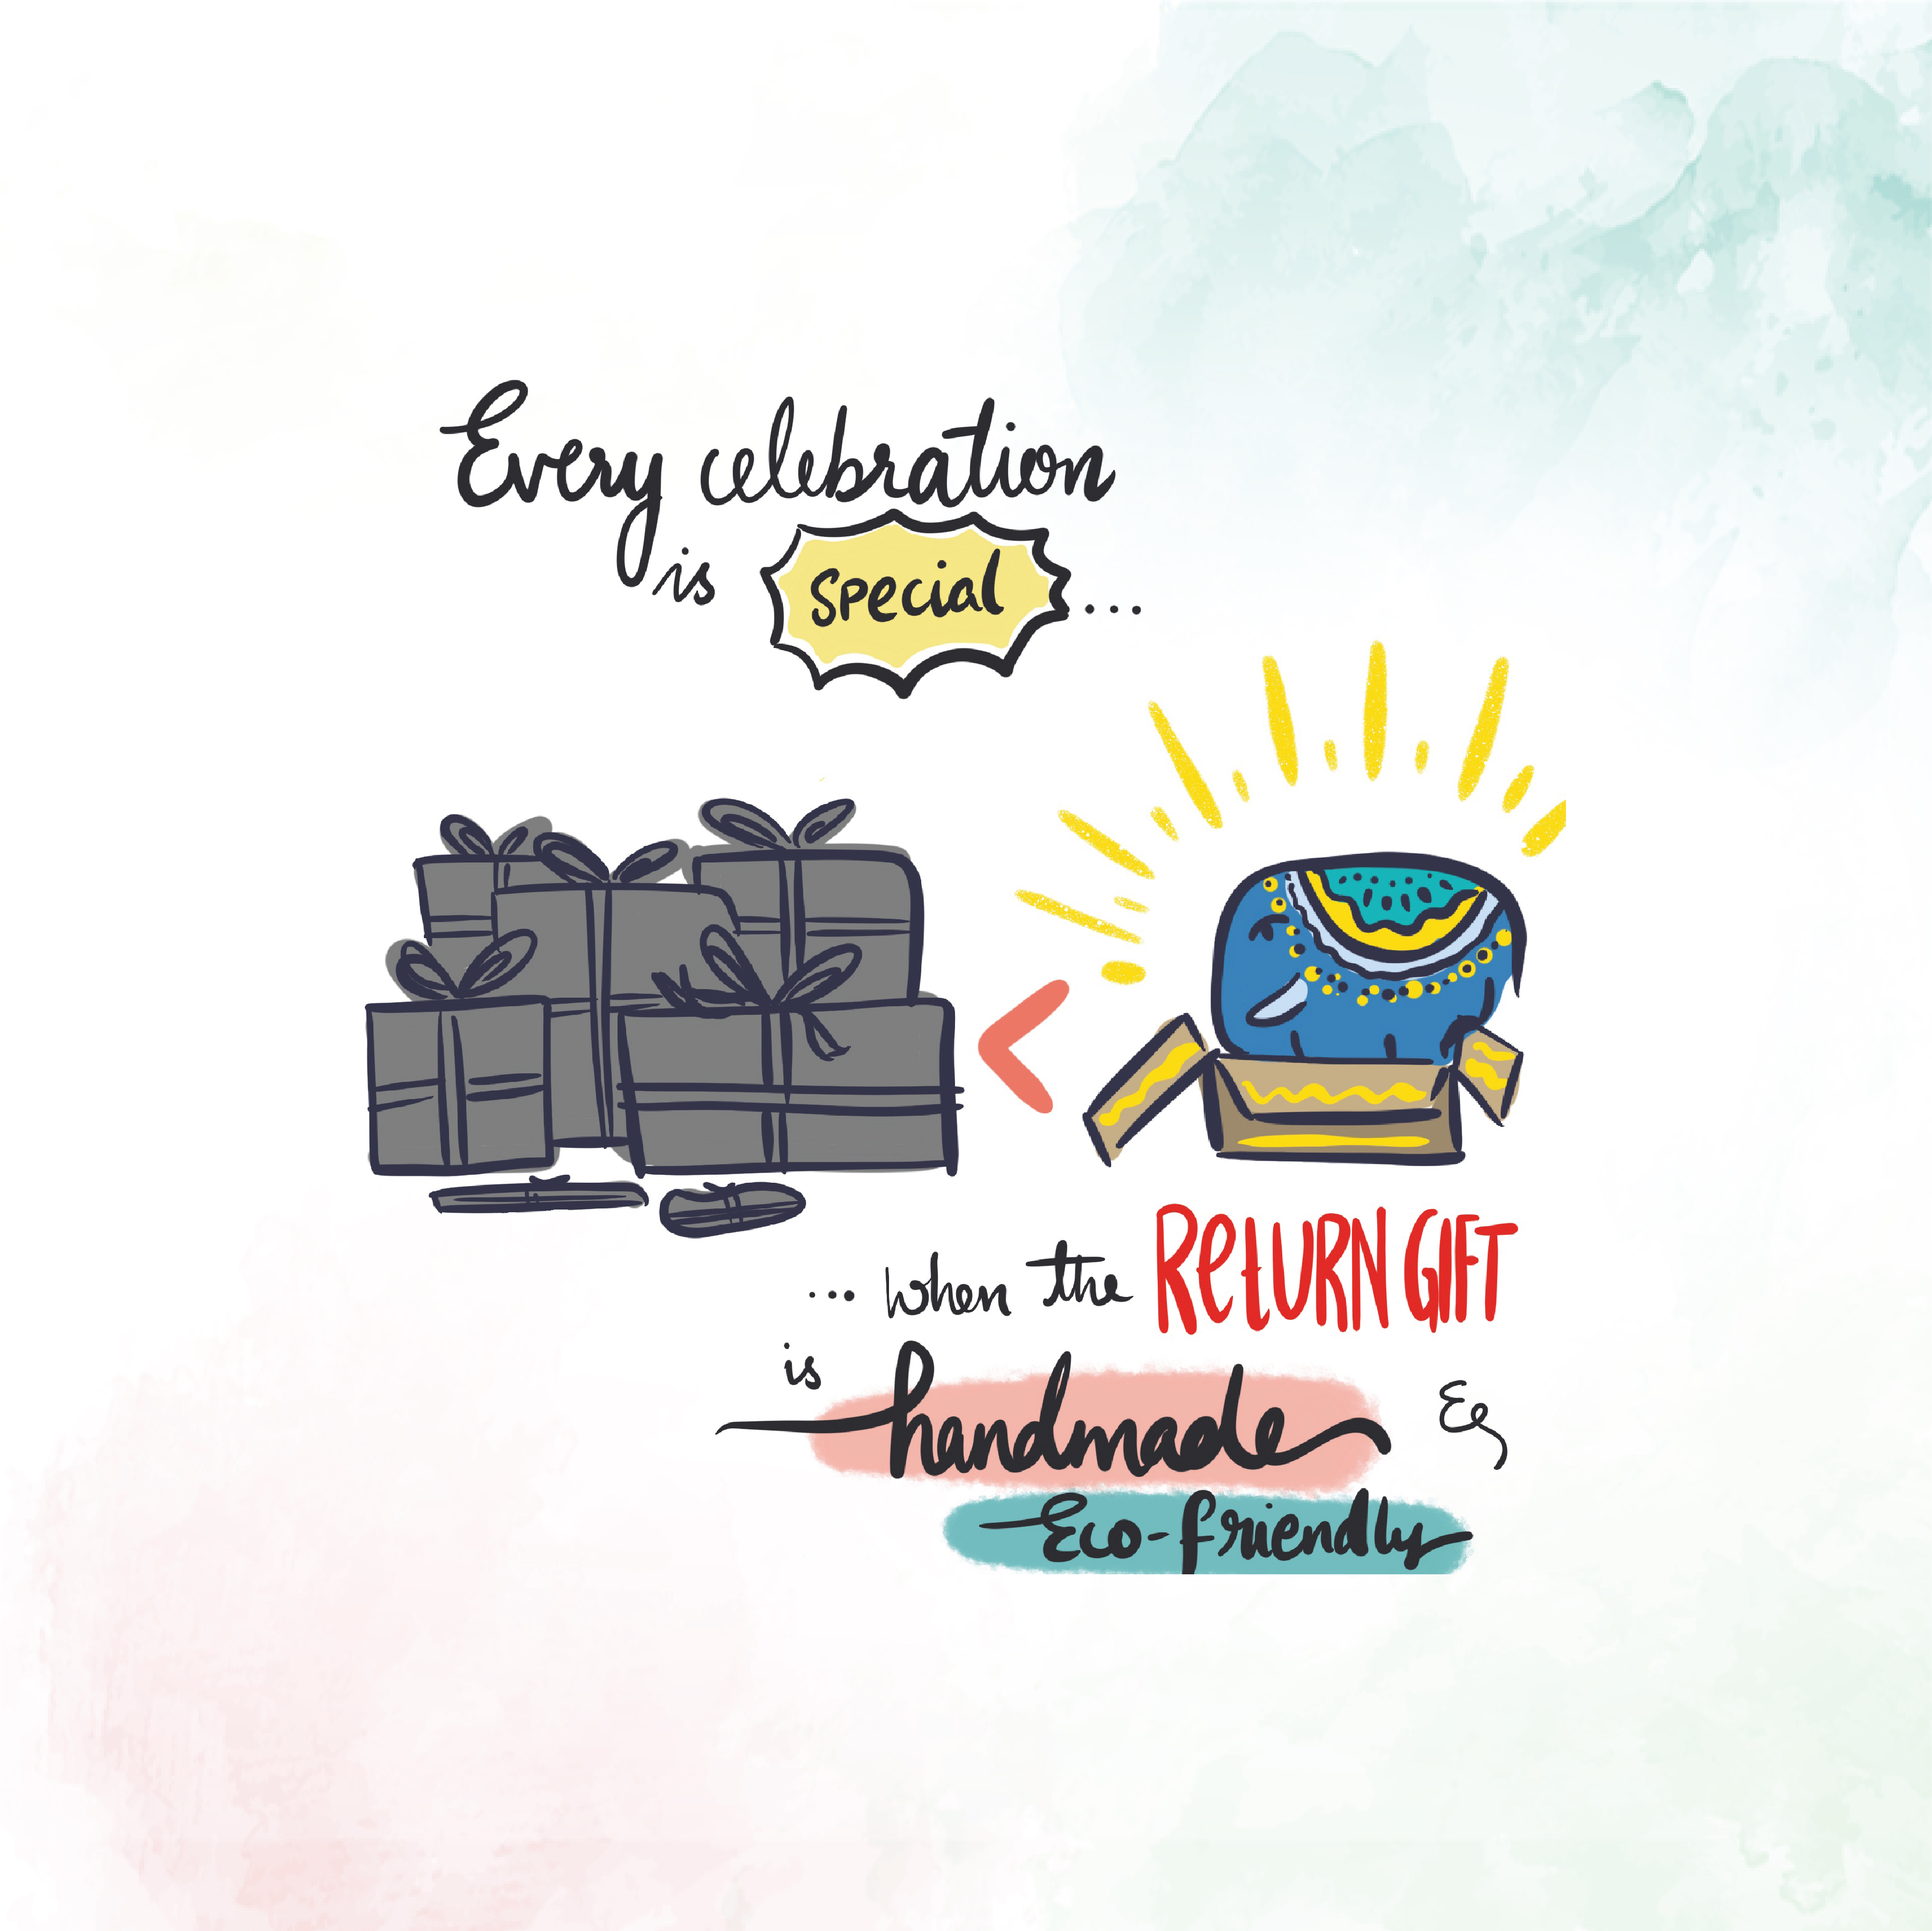 Every celebration
is special ...
<
... when the RETURN GIFT
is
handmade &
Eco-friendly